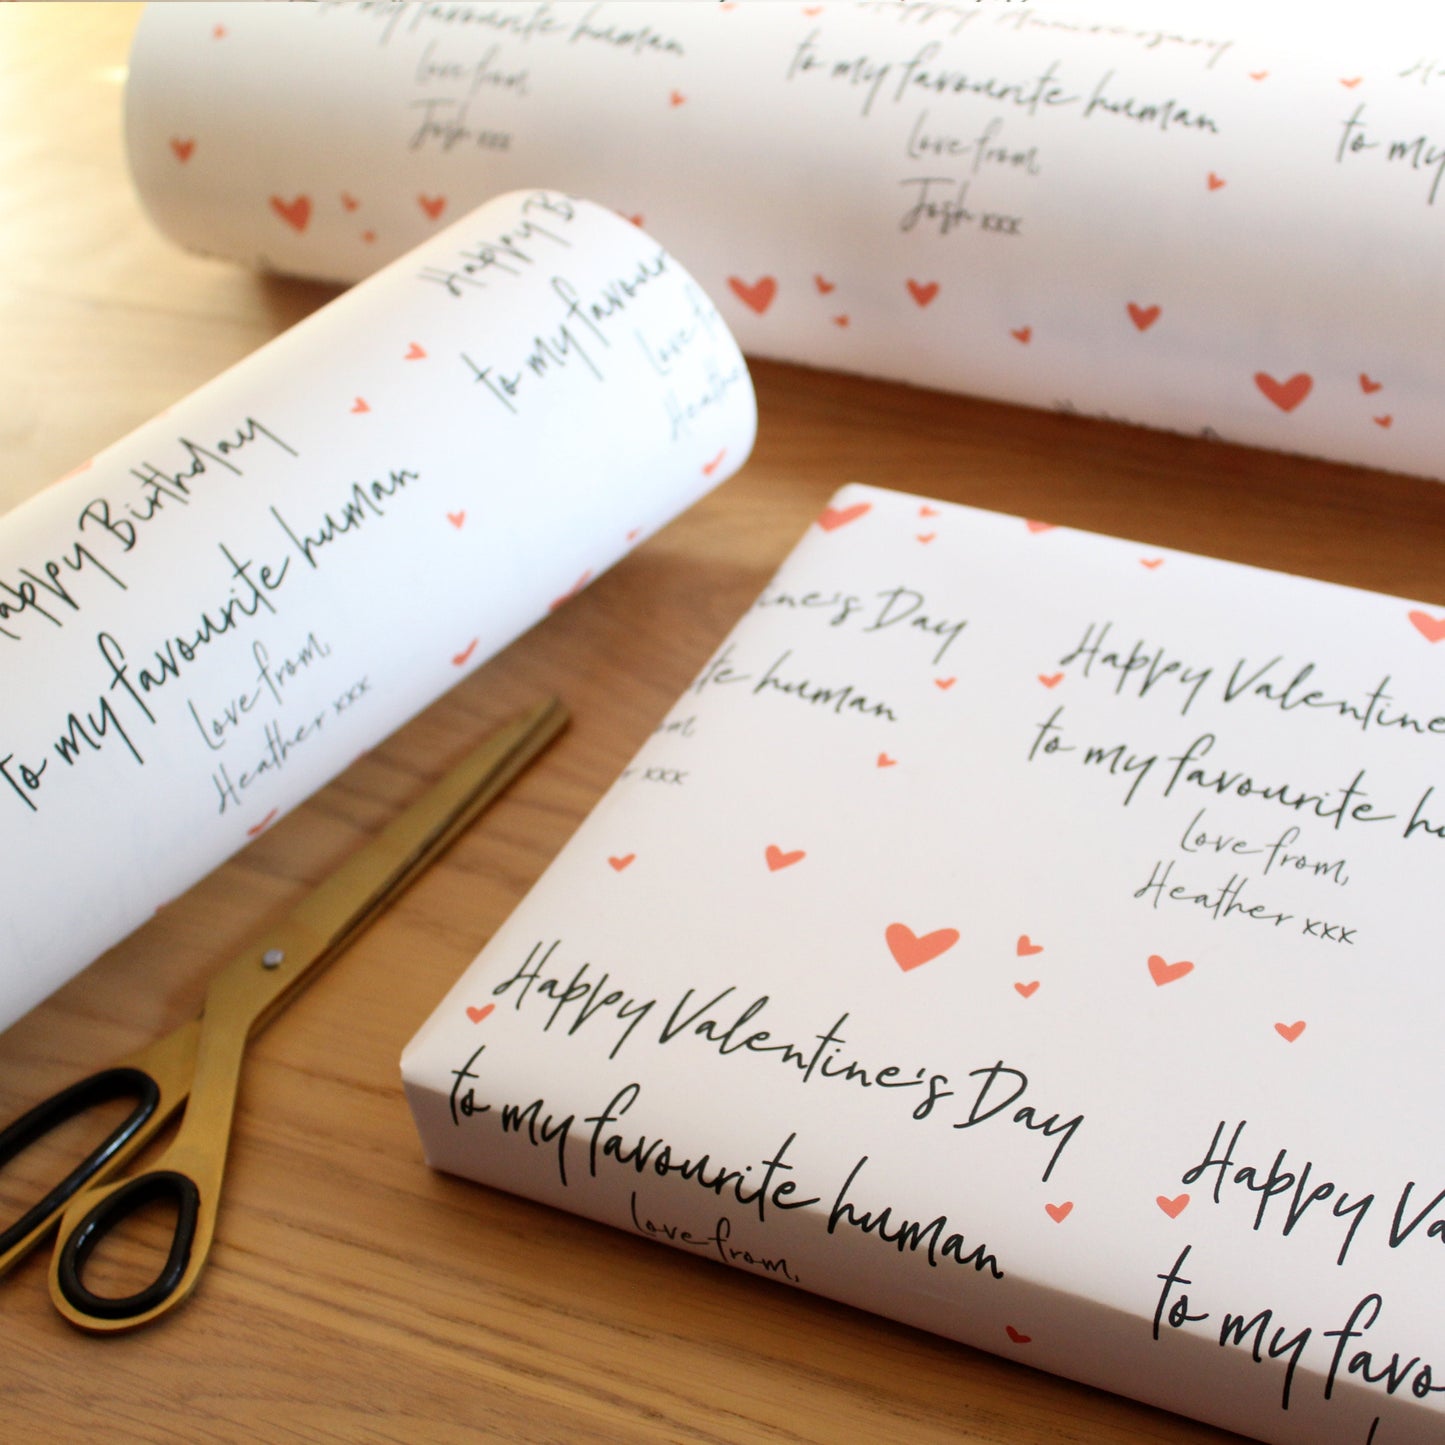 my favourite human
love from
Josh xxx
Happy Anniversary
to my favourite human
Love from,
Josh xxx
to my
Happy B
to my favour
Love f
Heathe
Happy Birthday
to my favourite human
Love from,
Heather xxx
ine's Day
te human
om
r xxx
Happy Valentine
to my favourite hu
Love from,
Heather xxx
Happy Valentine's Day
to my favourite human
Love from,
Happy Va
to my favo